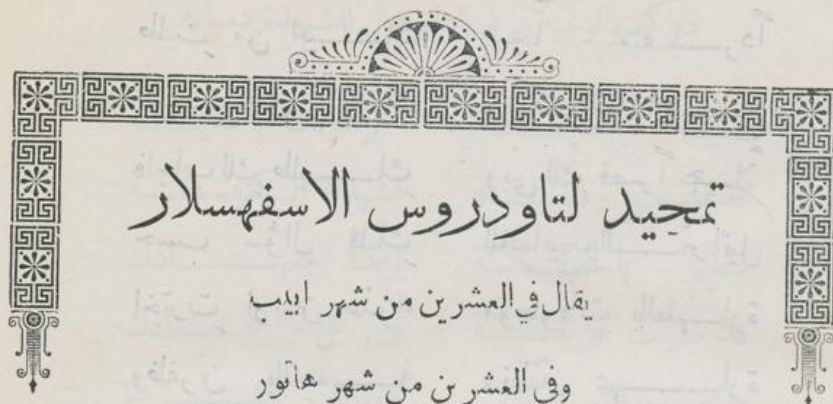 تمجيد لتاودروس الاسفهسلار
يقال في العشرين من شهر ابيب
وفى العشرين من شهر هاتور